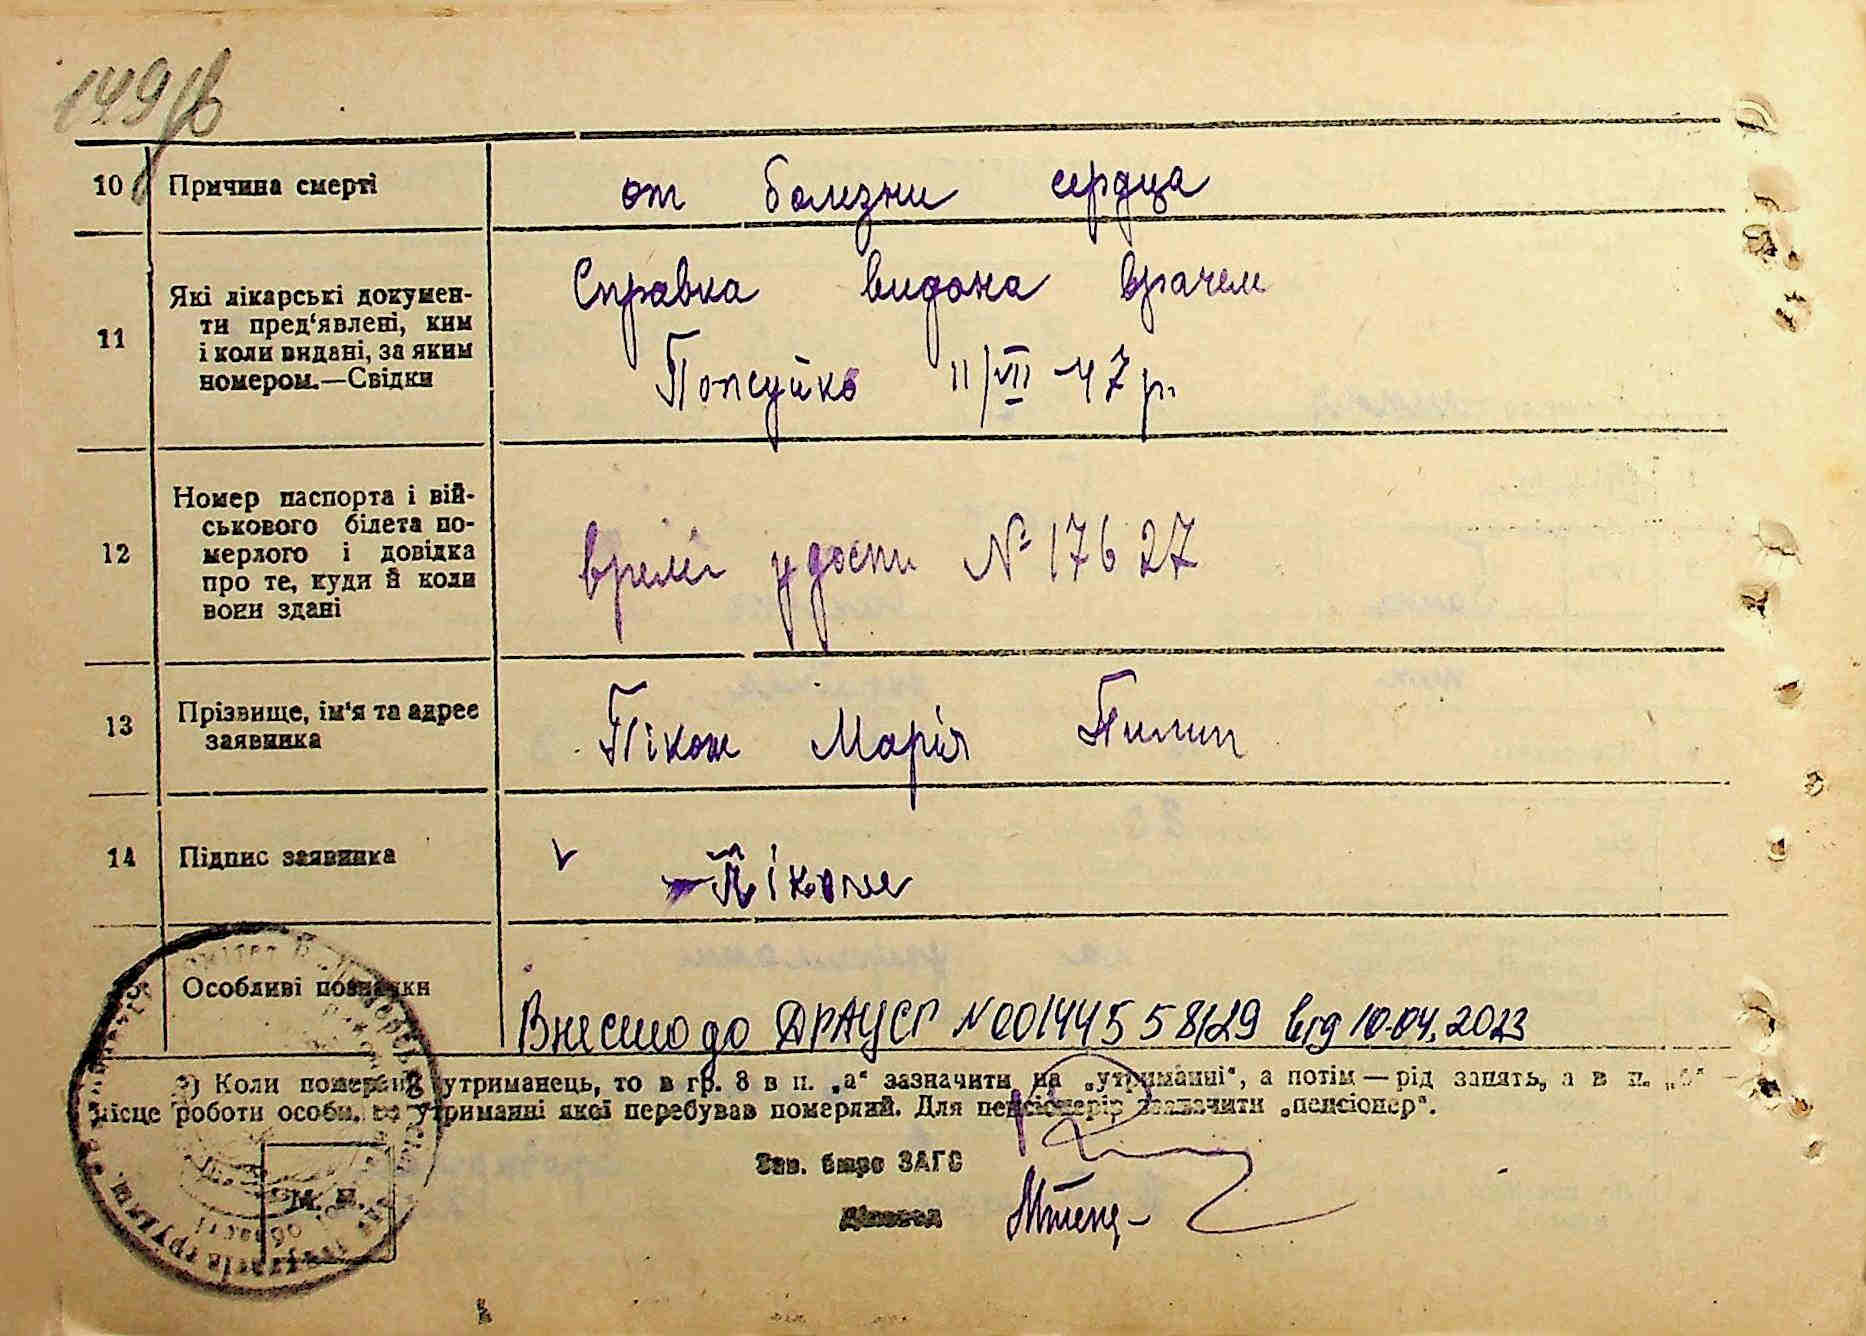 149
10 Причина смерті от болезни сердца
11 Які лікарські докумен-
ти пред'явлені, ким
і коли видані, за яким
номером.—Свідки
Справка видана врачем
11/VII-47 р.
12 Номер паспорта і вій-
ськового білета по-
мерлого і довідка
про те, куди й коли
вони здані
удост № 17627
13 Прізвище, ім'я та адрес
заявника
Марія Пилип
14 Підпис заявника
Особливі познаки
Внесено до ДРАЦСГ №00144558129 від 10.04.2023
*) Коли померлий утриманець, то в гр. 8 в п. „а" зазначити „на утриманні", а потім — рід занять, а в п. „б" —
місце роботи особи, на утриманні якої перебував померлий. Для пенсіонерів зазначити „пенсіонер".
Зав. бюро ЗАГС
Діловод
М. П.